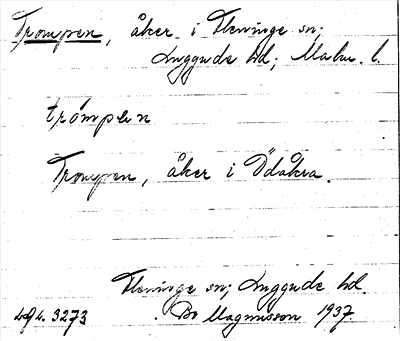 Trompen, åker i Fleninge sn;
Luggude hd; Malm. l.
trómpen
Trompen, åker i Ödåkra.
Fleninge sn; Luggude hd.
3273 Bo Magnusson 1937.